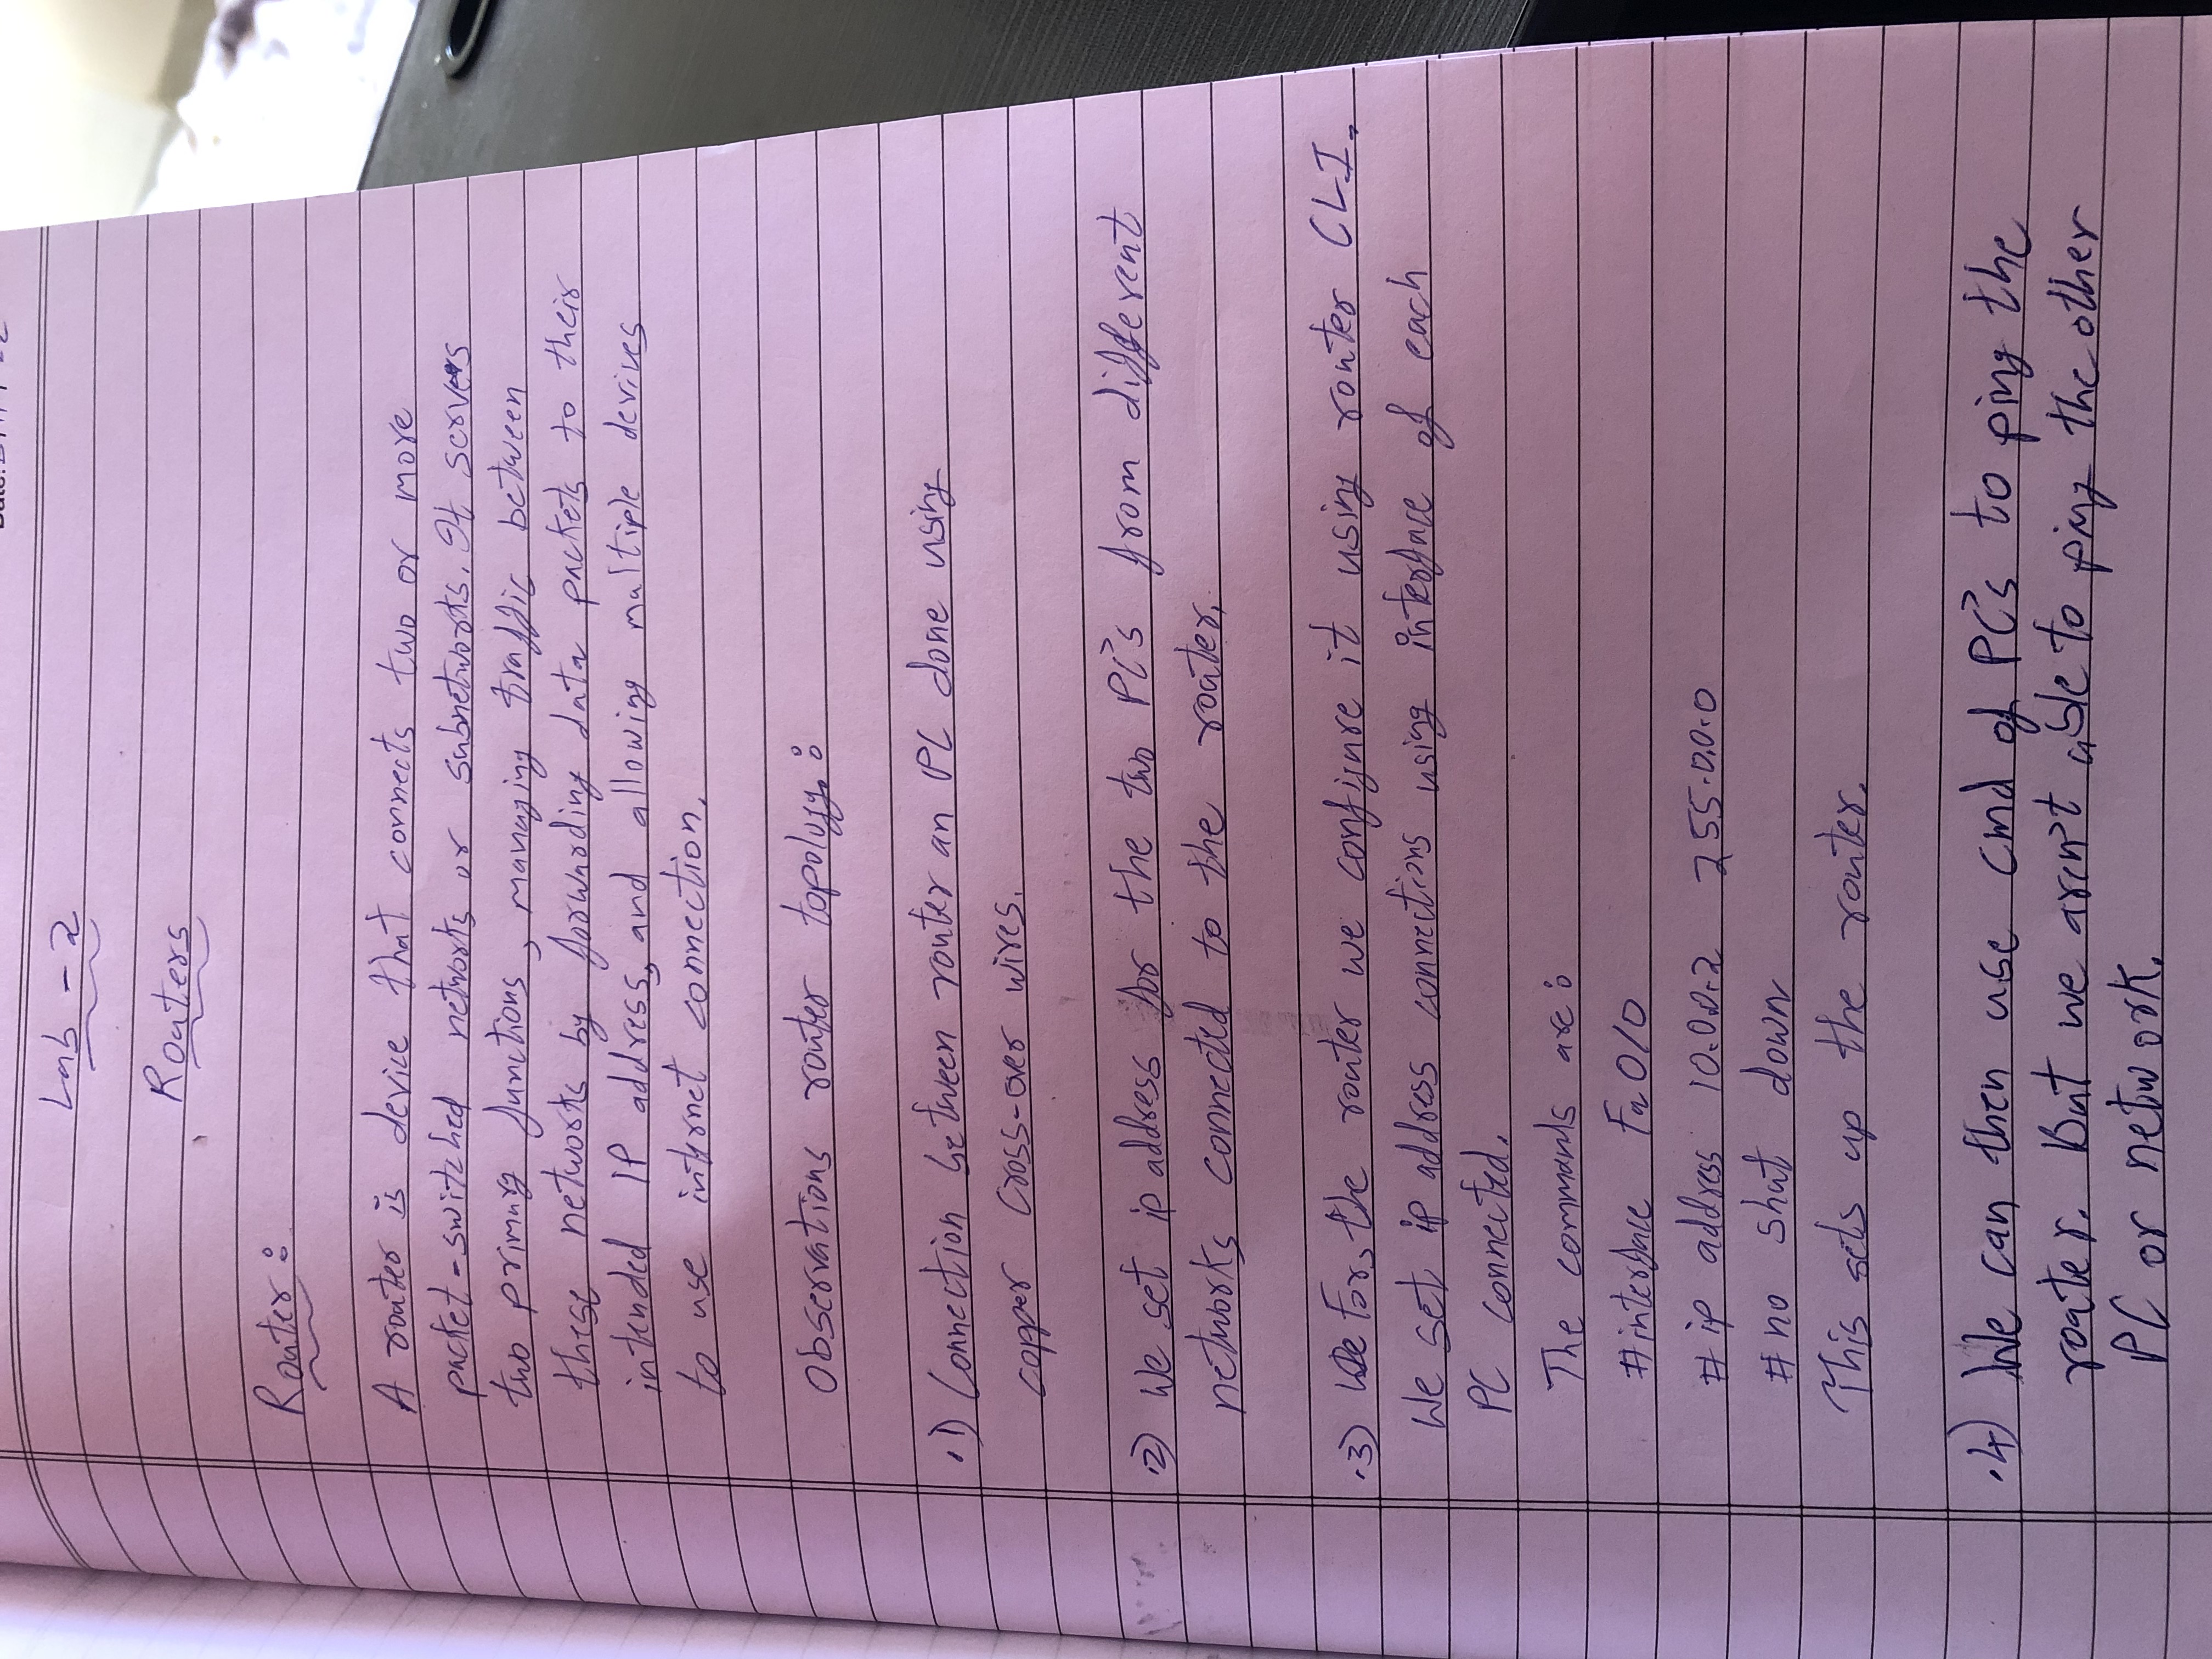 Date:
Lab - 2
Routers
Router :
A router is device that connects two or more
packet-switched networks or subnetworks. It servers
two primary functions, managing traffic between
these networks by forwarding data packets to their
intended IP address, and allowing multiple devives
to use internet connection.
Observations router topology. :
.1) Connection between router an PC done using
copper cross-over wires.
.2) We set ip address for the two PC's from different
networks connected to the router.
.3) For, the router we configure it using router CLI.
We set ip address connections using interface of each
PC connected.
The commands are :
#interface Fa 0/0
# ip address 10.0.0.2 255.0.0.0
# no shut down
This sets up the router.
.4) We can then use cmd of PC's to ping the
router. But we aren't able to ping the other
PC or network.